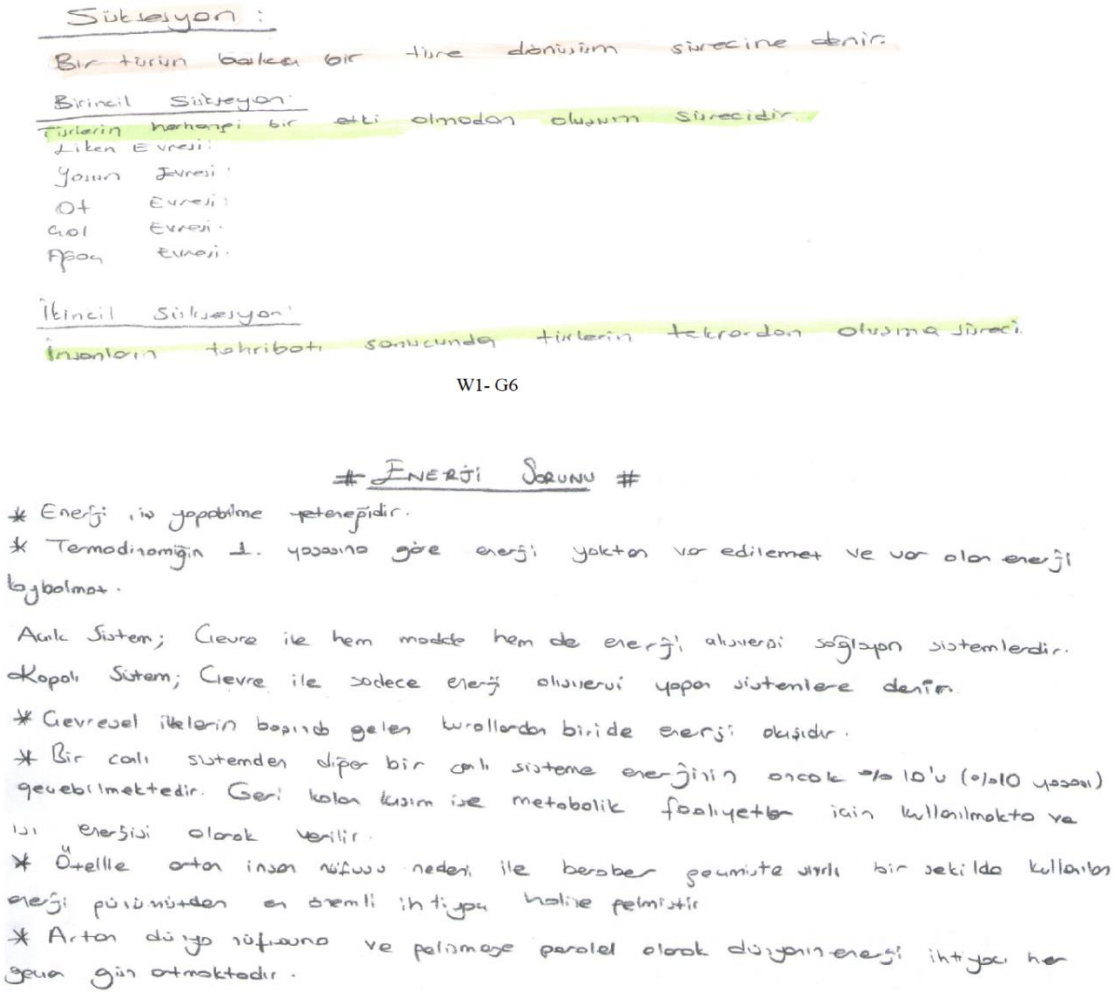 Süksesyon :
Bir türün başka bir türe dönüşüm sürecine denir.
Birincil Sükseyon:
Türlerin herhangi bir etki olmadan oluşum sürecidir.
Liken Evresi:
Yosun Evresi:
Ot Evresi:
Çalı Evresi.
Ağaç Evresi.
İkincil Süksesyon:
İnsanların tahribatı sonucunda türlerin tekrardan oluşma süreci.
W1- G6
# ENERJİ SORUNU #
* Enerji, iş yapabilme yeteneğidir.
* Termodinamiğin 1. yasasına göre enerji yoktan var edilemez ve var olan enerji
kaybolmaz.
Açık Sistem; Çevre ile hem madde hem de enerji alışverişi sağlayan sistemlerdir.
Kapalı Sistem; Çevre ile sadece enerji alışverişi yapan sistemlere denir.
* Çevresel ilkelerin başında gelen kurallardan biride enerji akışıdır.
* Bir canlı sistemden diğer bir canlı sisteme enerjinin ancak %10'u (%10 yasası)
geçebilmektedir. Geri kalan kısım ise metabolik faaliyetler için kullanılmakta ve
ısı enerjisi olarak verilir.
* Özellile artan insan nüfusu nedeni ile beraber geçmişte sınırlı bir şekilde kullanılan
enerji günümüzden en önemli ihtiyaç haline gelmiştir
* Artan dünya nüfusuna ve gelişmeye paralel olarak dünyanın enerji ihtiyacı her
geçen gün artmaktadır.